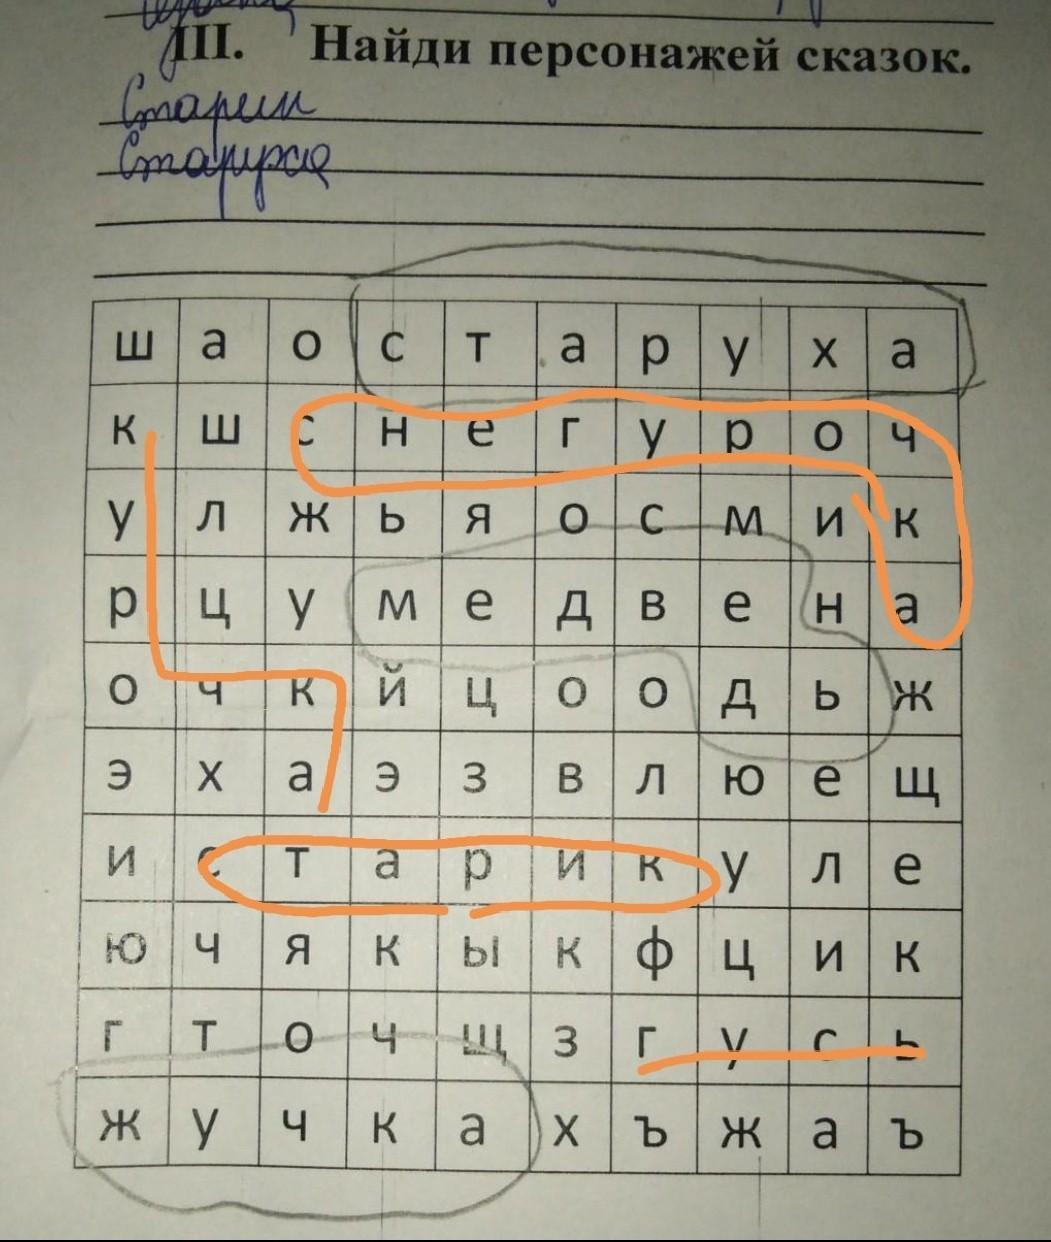 III. Найди персонажей сказок.
Старик
Старуха
ш а о с т а р у х а
к ш с н е г у р о ч
у л ж ь я о с м и к
р ц у м е д в е н а
о ч к й ц о о д ь ж
э х а э з в л ю е щ
и с т а р и к у л е
ю ч я к ы к ф ц и к
г т о ч щ з г у с ь
ж у ч к а х ъ ж а ъ